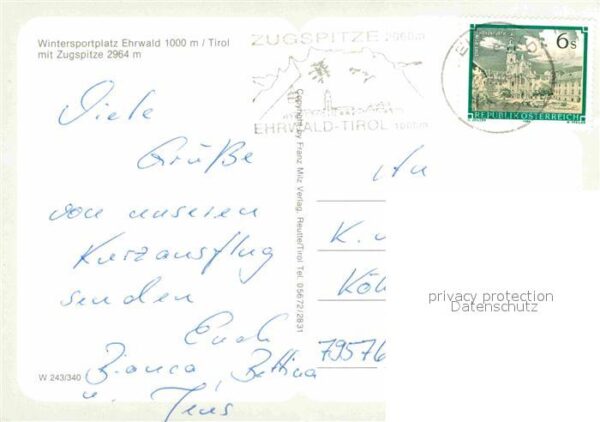 Wintersportplatz Ehrwald 1000 m / Tirol
mit Zugspitze 2964 m
ZUGSPITZE 2960m
EHRWALD-TIROL 1000m
6s
REPUBLIK ÖSTERREICH
Copyright by Franz Milz Verlag, Reutte/Tirol Tel. 05672/2831
Viele
Grüße
von unseren
Kurzausflug
senden
Euch
Bianca, Bettina
u. Jens
An
K. u
Köh
79576
privacy protection
Datenschutz
W 243/340